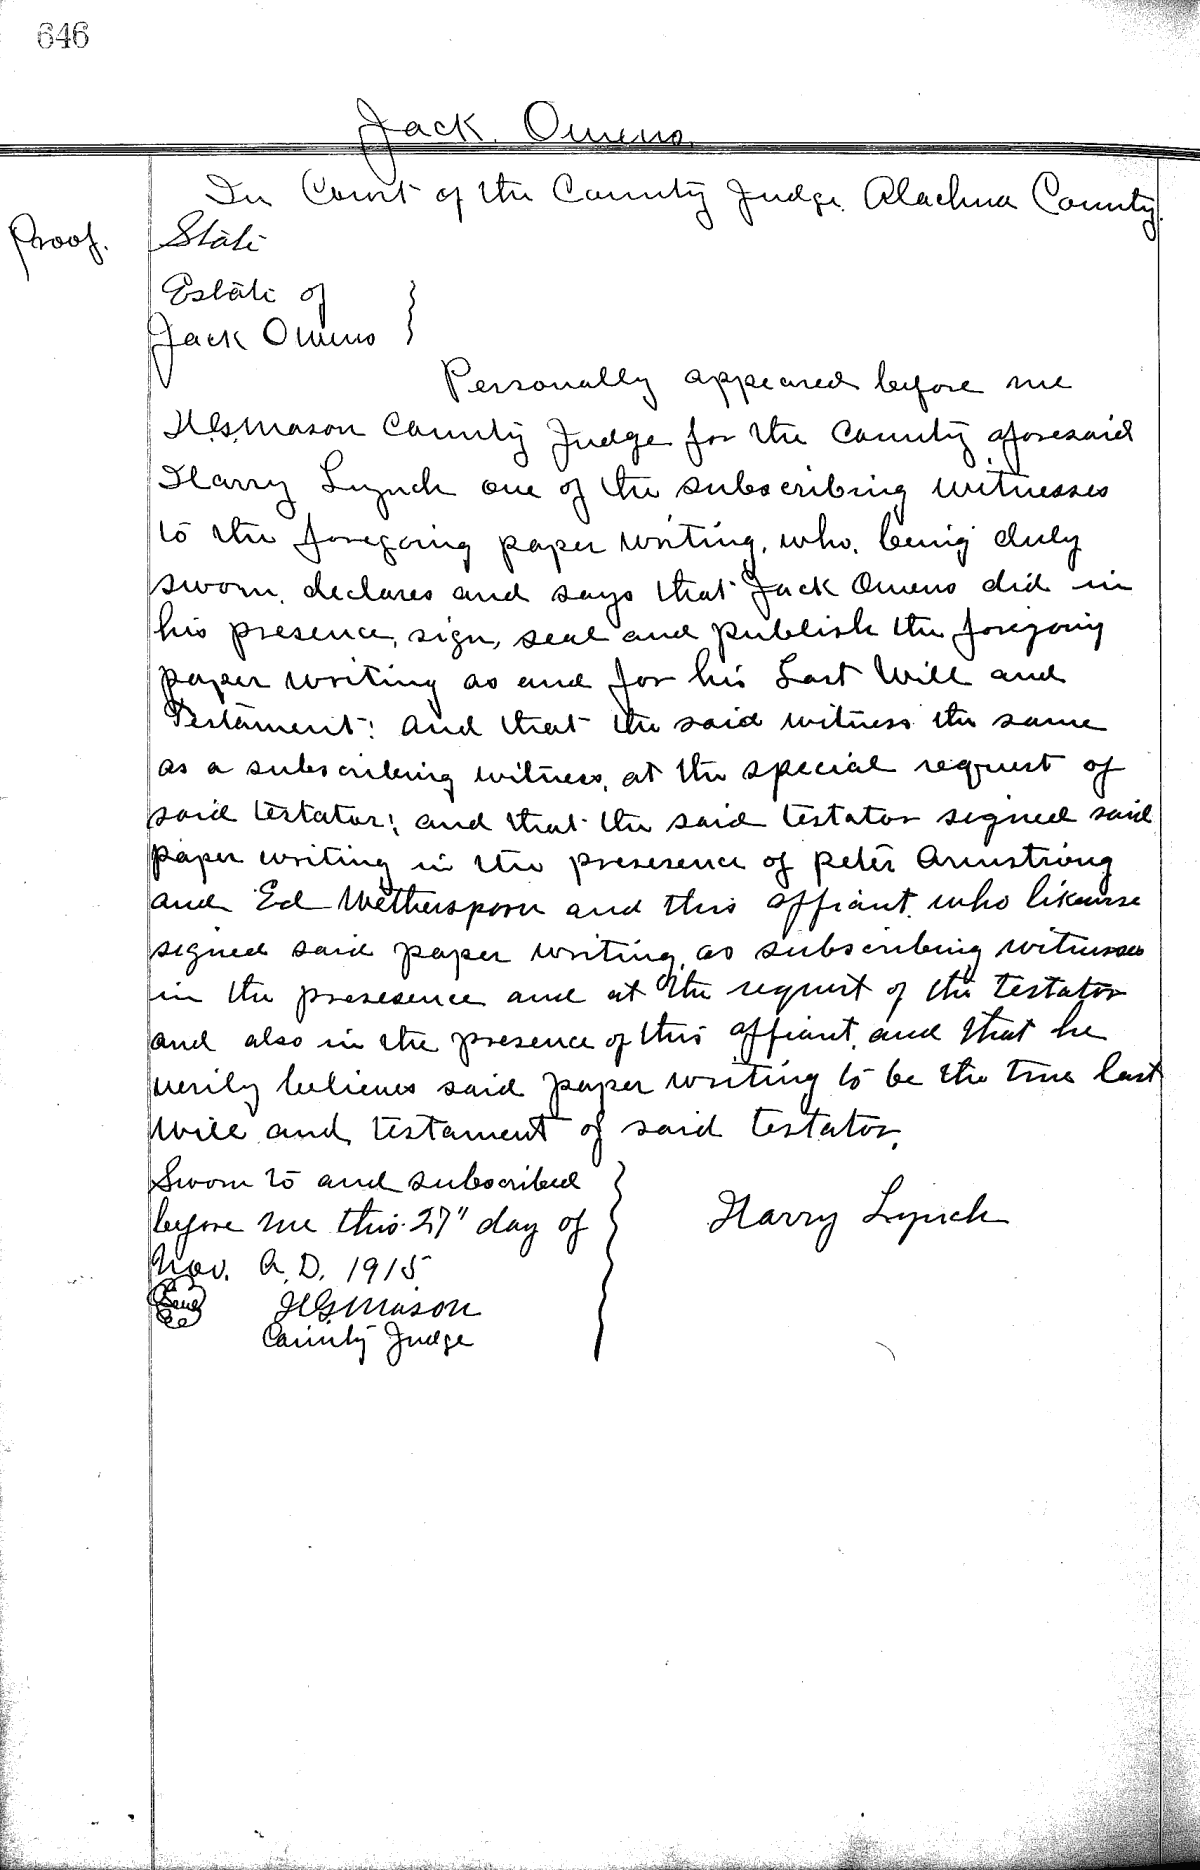 646
Jack Owens.
In Court of the County Judge Alachua County.
Proof.
State
Estate of
Jack Owens
Personally appeared before me
H.G. Mason County Judge for the County aforesaid
Harry Lynch one of the subscribing witnesses
to the foregoing paper writing, who, being duly
sworn, declares and says that Jack Owens did in
his presence, sign, seal and publish the foregoing
paper writing as and for his Last Will and
Testament; and that the said witness the same
as a subscribing witness, at the special request of
said testator; and that the said testator signed said
paper writing in the presesence of Peter Armstrong
and Ed Wetherspoon and this affiant, who likewise
signed said paper writing as subscribing witnesses
in the presesence and at the request of the testator
and also in the presence of this affiant, and that he
verily believes said paper writing to be the true last
will and testament of said testator.
Sworn to and subscribed
before me this 27" day of
Nov. A.D. 1915
Harry Lynch
Seal
H G Mason
County Judge